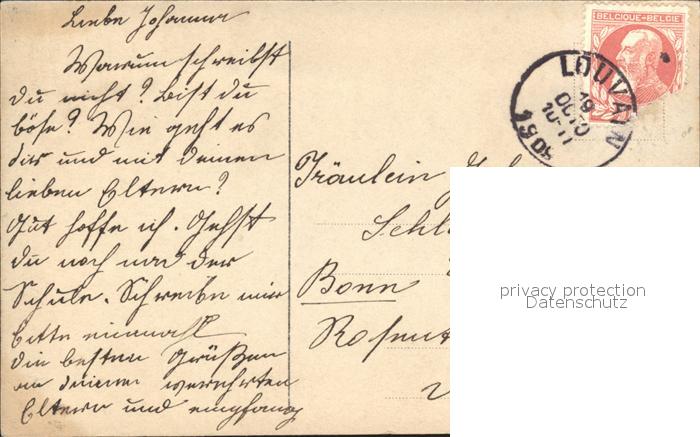 Liebe Johanna
Warum schreibst
du nicht? Bist du
böse? Wie geht es
dir und mit deinen
lieben Eltern?
Gut hoffe ich. Gehst
du noch nach der
Schule. Schreibe mir
bitte einmahl
die besten Grüßen
an deinen verehrten
Eltern und empfang
BELGIQUE-BELGIE
LOUVAIN
19
OCTO
10-11
1905
Fräulein
Bonn
privacy protection
Datenschutz